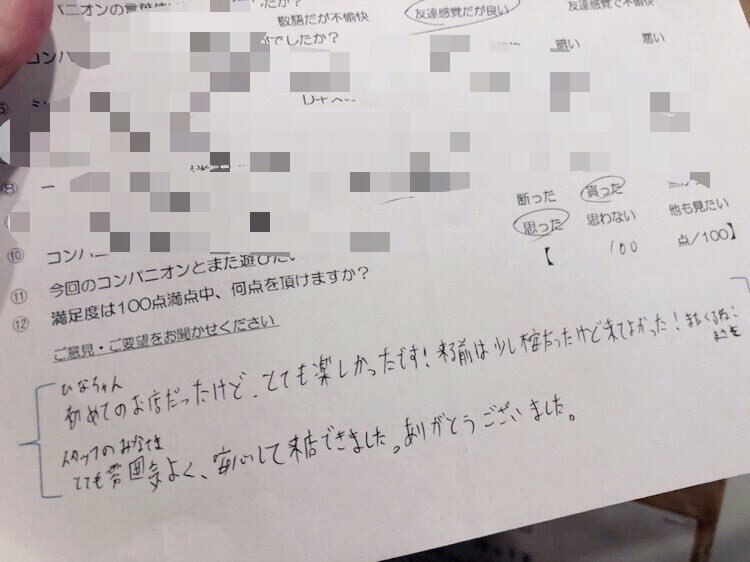 敬語だが不愉快
友達感覚だが良い
友達感覚で不愉快
でしたか?
暗い
悪い
コン
⑧
断った
貰った
思った
思わない
他も見たい
⑩ コンパニ
⑪ 今回のコンパニオンとまた遊びたい
【 100 点/100】
⑫ 満足度は100点満点中、何点を頂けますか?
ご意見・ご要望をお聞かせください
ひなちゃん
初めてのお店だったけど、とても楽しかったです!来る前は少し不安だったけど来てよかった!またくるね:
スタッフのみなさま
とても雰囲気よく、安心して来店できました。ありがとうございました。